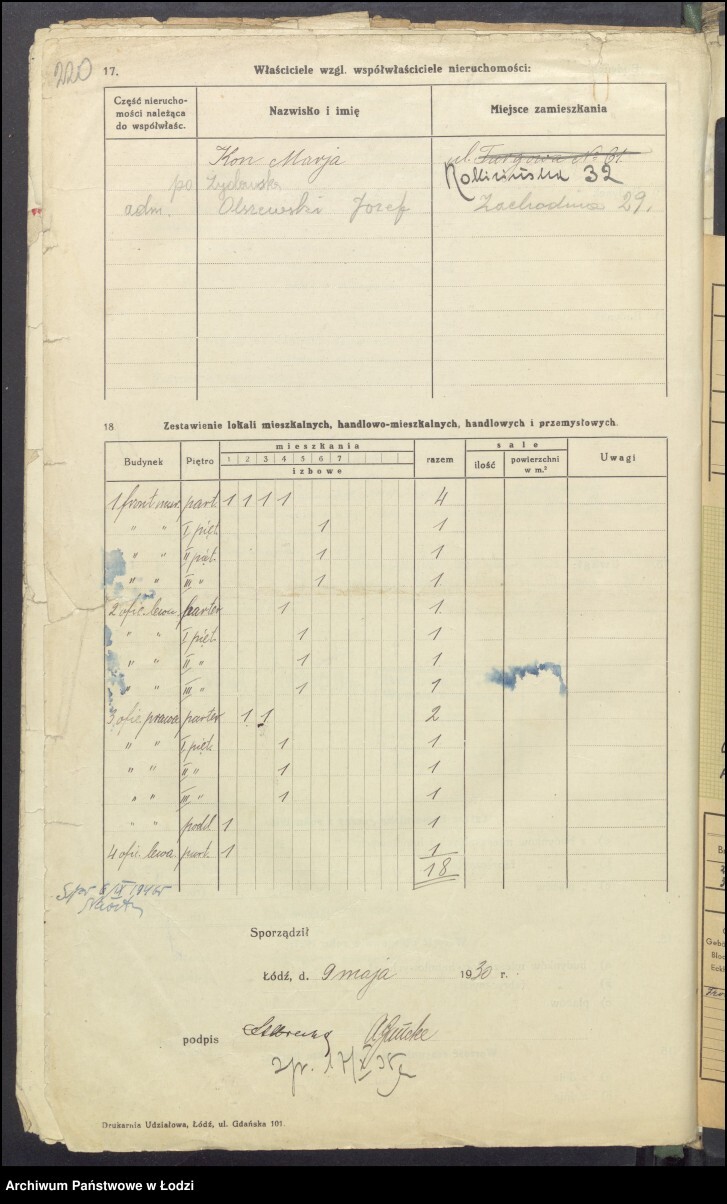 220
17. Właściciele wzgl. współwłaściciele nieruchomości:
Część nierucho-
mości należąca
do współwłaśc.
Nazwisko i imię
Miejsce zamieszkania
Kon Marja ul. Targowa № 61.
po 32
adm. Olszewski Józef Zachodnia 29.
18 Zestawienie lokali mieszkalnych, handlowo-mieszkalnych, handlowych i przemysłowych.
Budynek Piętro mieszkania razem sale Uwagi
1 2 3 4 5 6 7 ilość powierzchni
izbowe w m.²
1 front mur. part. 1 1 1 1 4
" " I pięt. 1 1
" " II pięt. 1 1
" " III " 1 1
2 ofic. lewa. parter 1 1
" " I pięt. 1 1
" " II " 1 1
" " III " 1 1
3 ofic prawa parter 1 1 2
" " I pięt. 1 1
" " II " 1 1
" " III " 1 1
" " podd. 1 1
4 ofic. lewa. part. 1 1
18
Sporządził
Łódź, d. 9 maja 1930 r.
podpis
Drukarnia Udziałowa, Łódź, ul. Gdańska 101.
Archiwum Państwowe w Łodzi